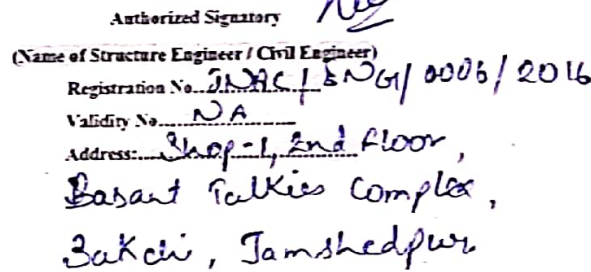 Authorized Signatory
(Name of Structure Engineer / Civil Engineer)
Registration No....JNAC / ENG/ 0006/ 2016
Validity No......NA............
Address:....Shop-1, 2nd floor,
Basant Talkies Complex,
Sakchi, Jamshedpur.